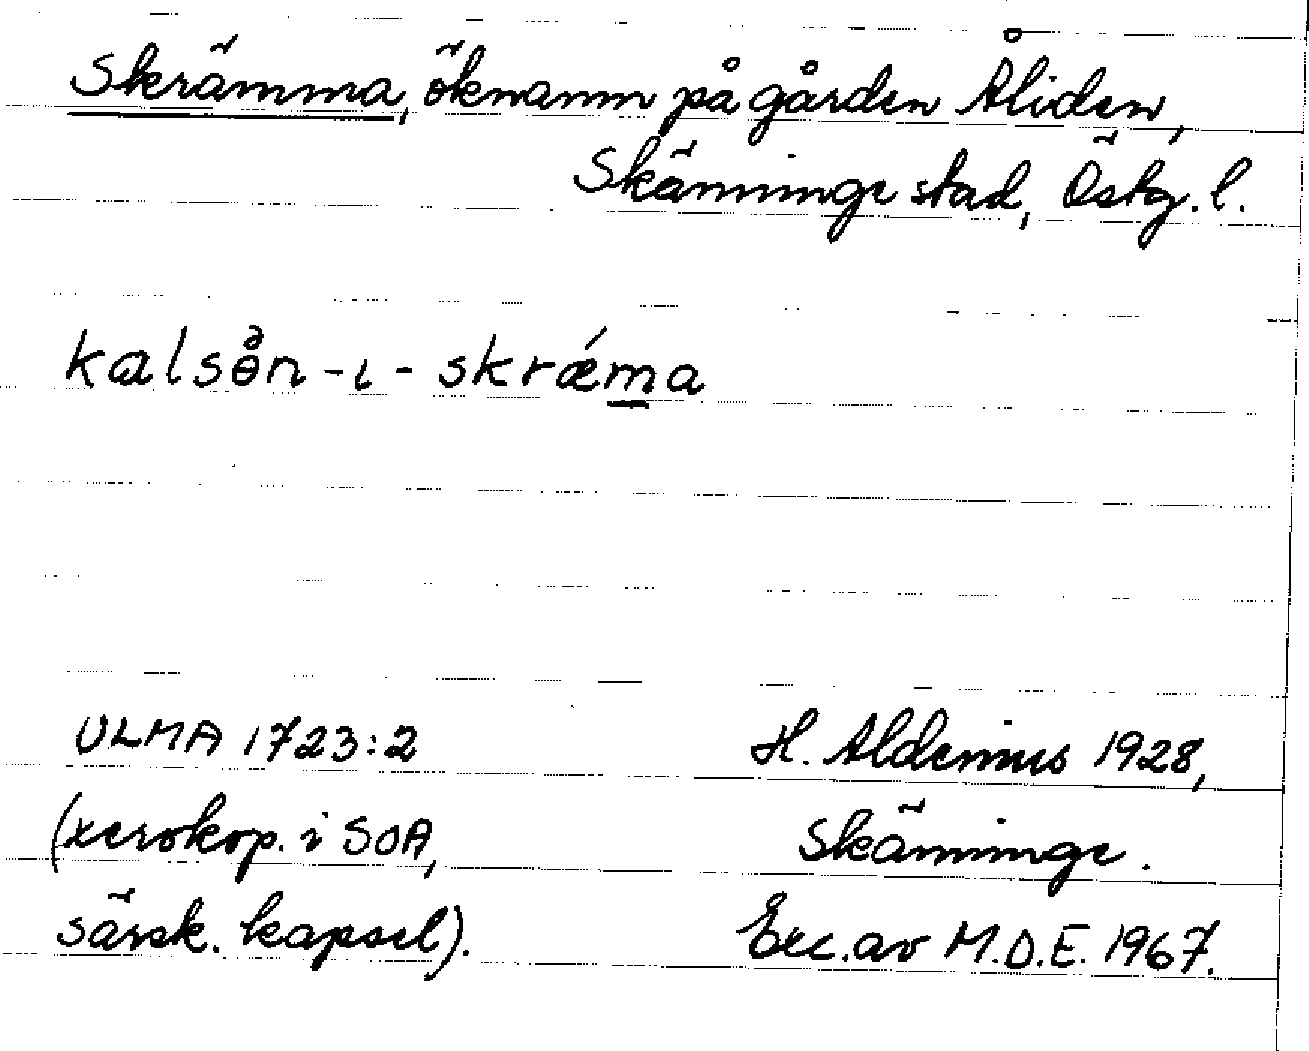 Skrämma, öknamn på gården Åliden,
Skänninge stad, Östg. l.
kalsə̊n-ɩ-skrǽm̲a
ULMA 1723:2
H. Aldenius 1928,
(xerokop. i SOA,
Skänninge.
särsk. kapsel).
Exc. av M.D.E. 1967.